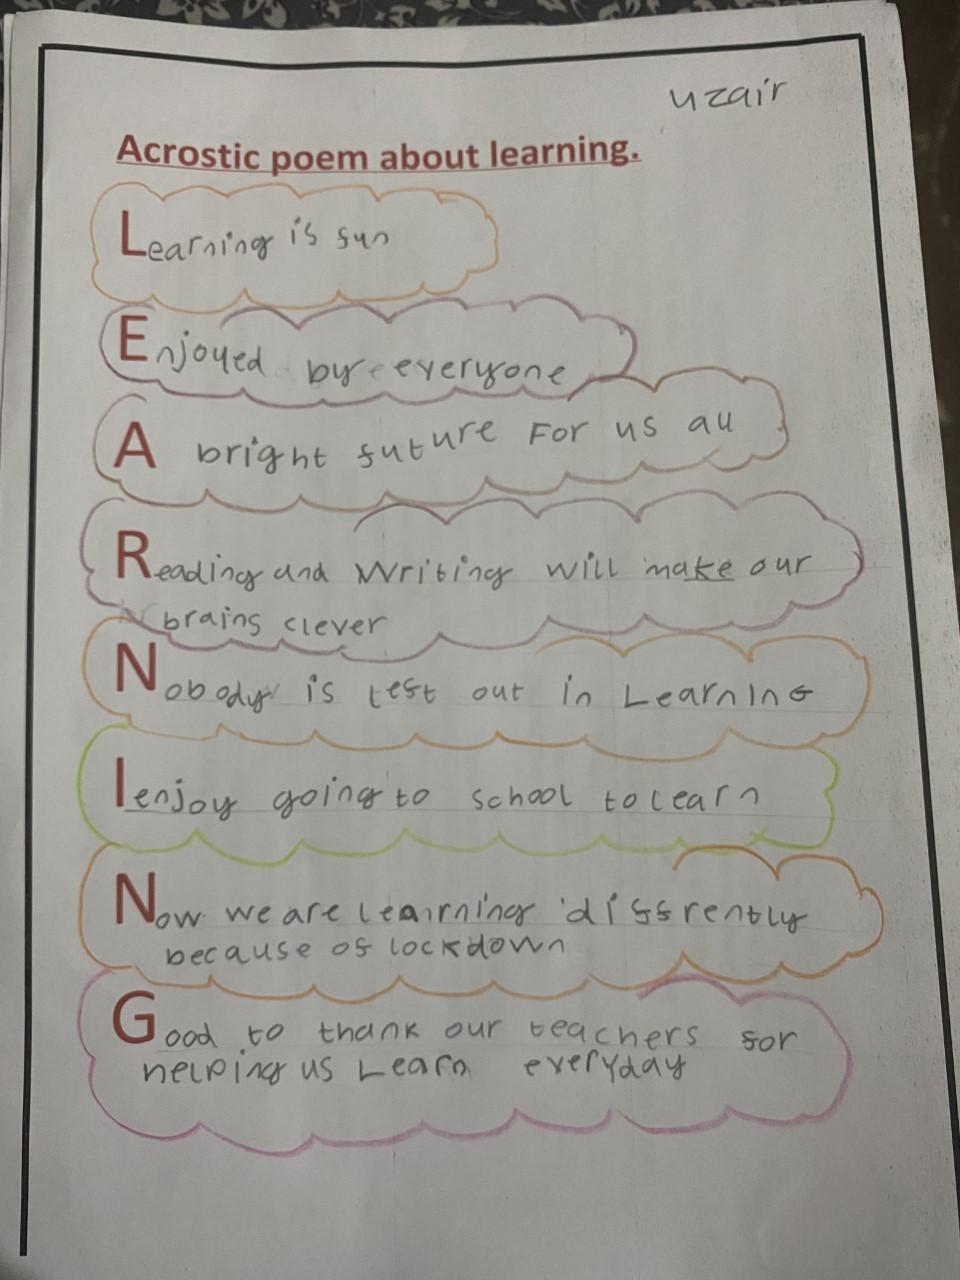 uzair
Acrostic poem about learning.
Learning is fun
Enjoyed by everyone
A bright future For us all
Reading and writing will make our
brains clever
Nobody is test out in Learning
I enjoy going to school to learn
Now we are learning diffrently
because of lockdown
Good to thank our teachers for
helping us Learn everyday